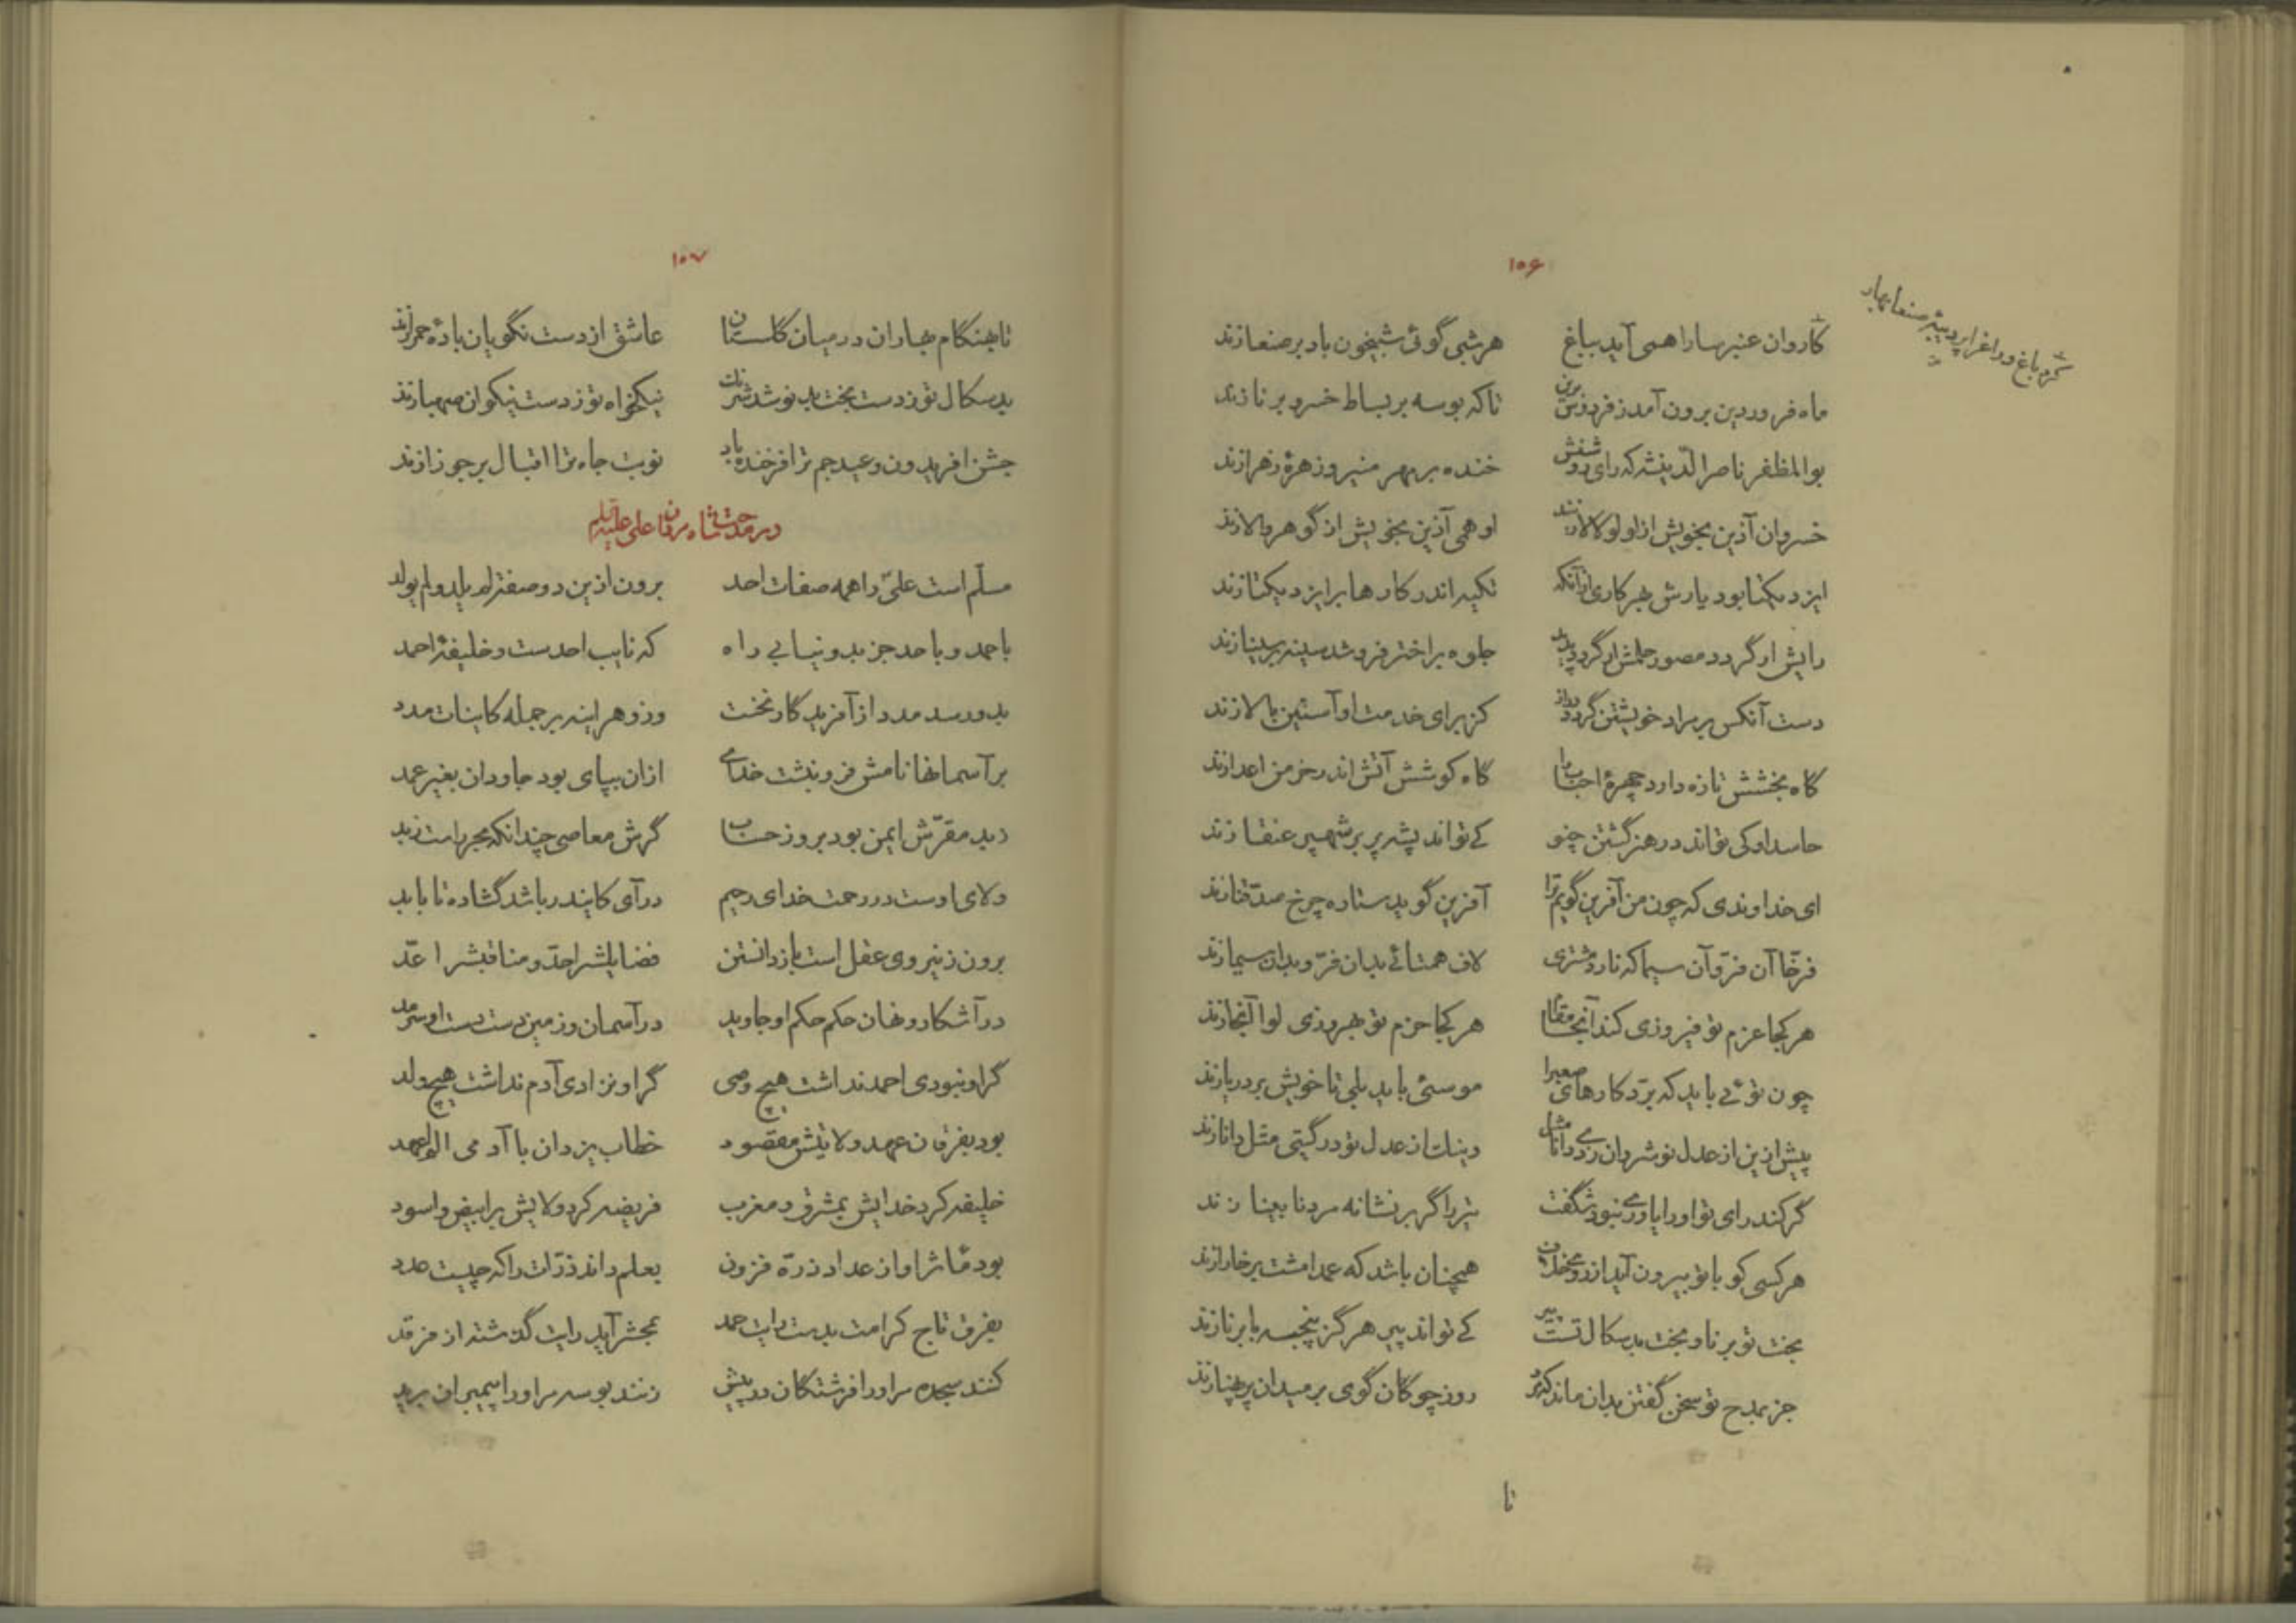 ۱۰۶
کرد باغ و راغ را پر دیبهٔ صنعا بهار
کاروان عنبر سارا همی آید بباغ هر شبی گوئی شبیخون باد بر صنعا زند
ماه فروردین برون آمد ز فردوس برین تا که بوسه بر بساط خسرو برنا زند
بوالمظفر ناصرالدینشه که رای روشنش خنده بر مهر منیر و زهرهٔ زهرا زند
خسروان آذین بخویش از لولو لالا زنند او همی آذین بخویش از گوهر والا زند
ایزد یکتا بود یارش بهر کاری از آنکه تکیه اندر کارها بر ایزد یکتا زند
رایش ار گردد مصور حلمش ار گردد پدید جلوه بر اختر فروشد سینه بر سینا زند
دست آنکس بر مراد خویشتن گردد دراز کز برای خدمت او آستین بالا زند
گاه بخشش تازه دارد چهرهٔ احباب را گاه کوشش آتش اندر خرمن اعدا زند
حاسد او کی تواند در هنر گشتن چنو کے تواند پشه پر بر شهپر عنقا زند
ای خداوندی که چون من آفرین گویم ترا آفرین گوید ستاره چرخ صدقنا زند
فرّخا آن فرّ و آن سیما که نارد مشتری لاف همتائے بدان فرّ و بدان سیما زند
هر کجا عزم تو فیروزی کند آنجا مقام هر کجا حزم تو بهروزی لوا آنجا زند
چون توئے باید که برّد کارهای صعب را موسئی باید بلی تا خویش بر دریا زند
پیش ازین از عدل نوشروان زدے دانا مثل وینک از عدل تو در گیتی مثل دانا زند
گر کند رای تو او را یاورے نبود شگفت تیر را گر بر نشانه مرد نابینا زند
هر کسی کو با تو بیرون آید از در همچنان باشد که عمدا مشت بر خارا زند
بخت تو برنا و بخت بدسکال تست پیر کے تواند پیر هرگز پنجه با برنا زند
جز بمدح تو سخن گفتن بدان ماند که مرد روز چوگان گوی بر میدان پر پهنا زند
تا
۱۰۷
تا بهنگام بهاران در میان گلستان عاشق از دست نگویان بادهٔ حمرا زند
بدسکال تو ز دست بخت بد نوشد شرنگ نیکخواه تو ز دست نیکوان صهبا زند
جشن افریدون و عید جم ترا فرخنده باد نوبت جاه ترا اقبال بر جوزا زند
در مدحت شاه مردان علی علیه السلم
مسلّم است علیّ را همه صفات احد برون ازین دو صفت لم یلد و لم یولد
باحمد و باحد جز بدو نیابی راه که نایب احدست و خلیفهٔ احمد
بدو رسد مدد از آفریدگار نخست وزو هر اینه بر جمله کاینات مدد
بر آسمانها نامش فرو نبشت خدای ازان بپای بود جاودان بغیر عمد
دید مقرّش ایمن بود بروز حساب گرش معاصی چندانکه
ولای اوست در رحمت خدای رحیم درآی کایندر باشد گشاده تا بابد
برون ز نیروی عقل است بازدانستن فضایلش را حدّ و مناقبش را عدّ
در آشکار و نهان حکم حکم او جاوید در آسمان و زمین دست دست او سرمد
گر او نبودی احمد نداشت هیچ وصی گر او نزادی آدم نداشت هیچ ولد
بود بفرقان عهد ولایتش مقصود خطاب یزدان با آدمی الم اعهد
خلیفه کرد خدایش بمشرق و مغرب فریضه کرد ولایش بر ابیض و اسود
بود مآثر او از عداد ذرّه فزون بعلم داند ذرّات را که چیست عدد
بفرق تاج کرامت بدست رایت حمد بمحشر آید رایت گذشته از فرقد
کنند سجده مر او را فرشتگان در پیش زنند بوسه مر او را پیمبران بر ید